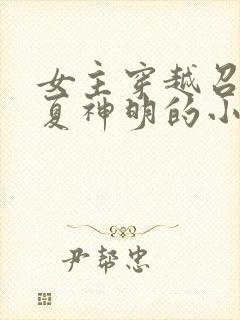 女主穿越召
夏神明的小
尹帮忠